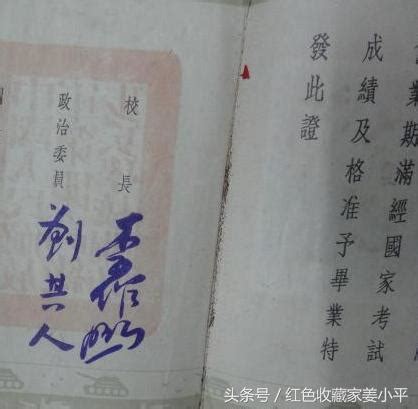 業期滿經國家考試
成績及格准予畢業特
發此證
校長 李作鹏
政治委員 劉其人
头条号／红色收藏家姜小平